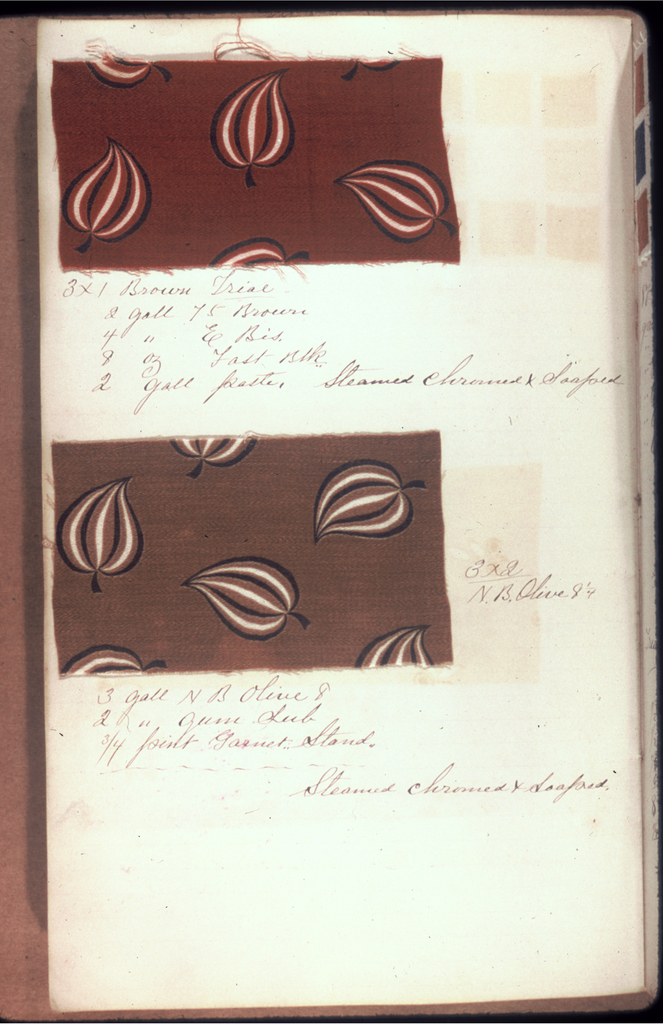 3x1 Brown Trial
2 gall 75 Brown
4 " E Bis.
8 oz Fast Blk
2 gall paste. Steamed chromed & Soaped
3x2
N.B. Olive 8
3 gall N B Olive 8
2 " gum Sub
3/4 pint Garnet Stand.
Steamed chromed & Soaped.